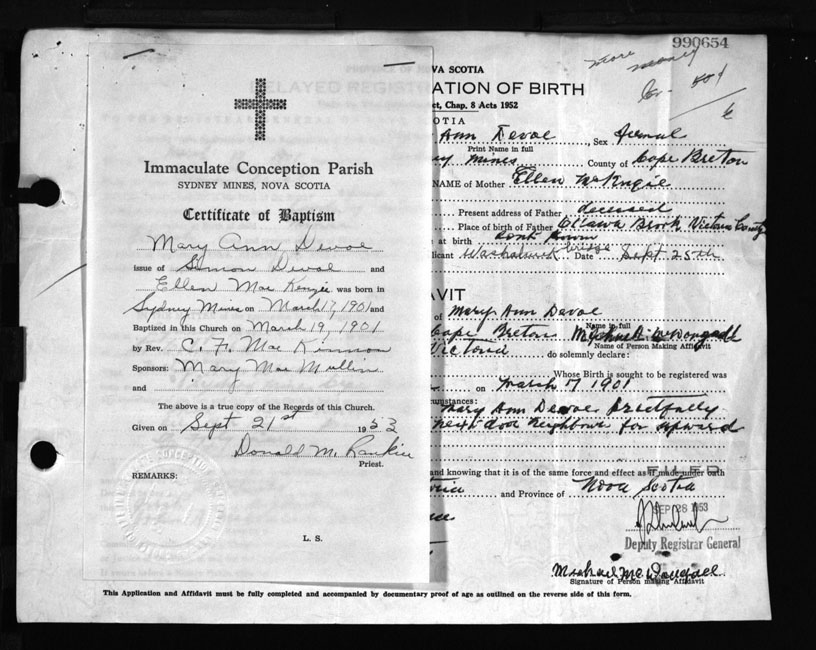 990654
more money
Immaculate Conception Parish
SYDNEY MINES, NOVA SCOTIA
Certificate of Baptism
Mary Ann Devoe
issue of Simon Devoe and
Ellen Mac Kenzie was born in
Sydney Mines on March 17, 1901 and
Baptized in this Church on March 19, 1901
by Rev. C. F. Mac Kinnon
Sponsors: Mary Mac Mullin
and
The above is a true copy of the Records of this Church.
Given on Sept 21st 1953
Donald M. Rankin
Priest.
REMARKS:
L. S.
VA SCOTIA
ATION OF BIRTH
ct, Chap. 8 Acts 1952
OTIA
Ann Devoe, Sex Female
Print Name in full
ey Mines County of Cape Breton
NAME of Mother Ellen McKenzie
Present address of Father deceased
Place of birth of Father Ottawa Brook Victoria County
at birth
icant Washabuck Bridge Date Sept 25th
AVIT
of Mary Ann Devoe
Name in full
Cape Breton
Name of Person Making Affidavit
Victoria do solemnly declare:
Whose Birth is sought to be registered was
on March 17 1901
cumstances:
Mary Ann Devoe
next door neighbour for upward
and knowing that it is of the same force and effect as if made under oath
FILED
toria and Province of Nova Scotia
SEP 28 1953
Deputy Registrar General
Michael McDougall
Signature of Person making Affidavit
This Application and Affidavit must be fully completed and accompanied by documentary proof of age as outlined on the reverse side of this form.